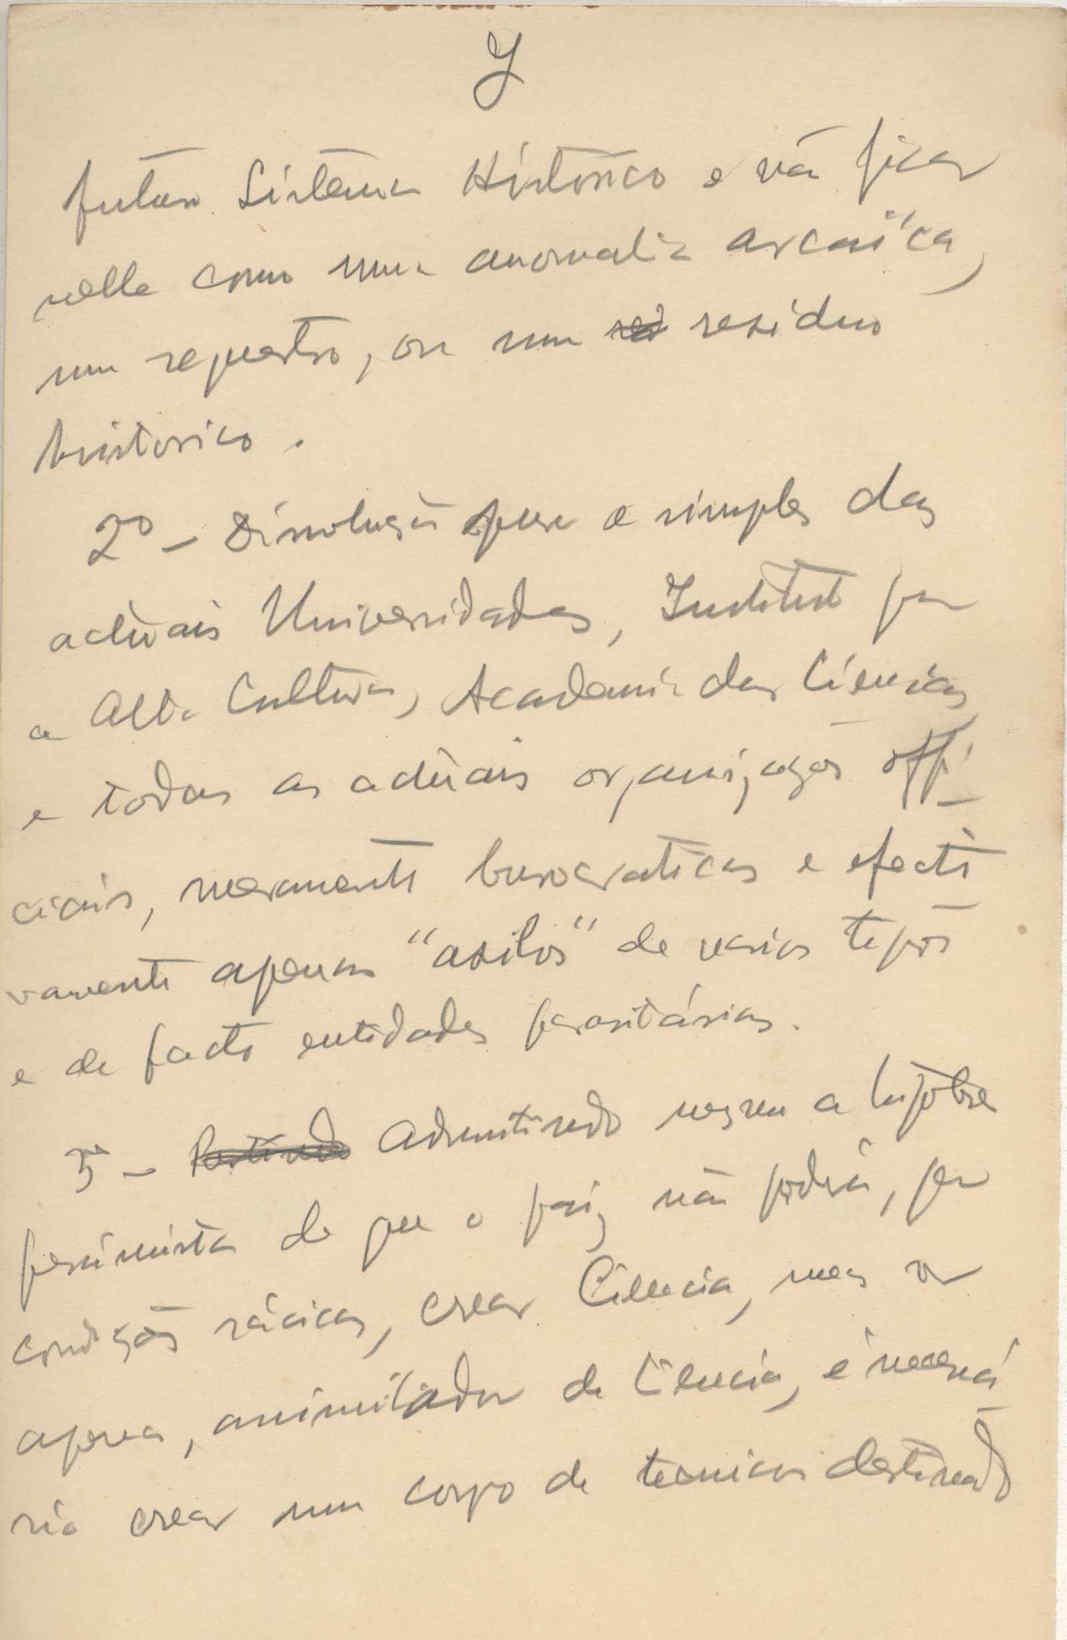 y
futuro Sistema Historico e vá ficar
nelle como uma anomalia arcaica,
um sequestro, ou um residuo
historico.
2º - Dissolução pura e simples das
actuais Universidades, Instituto para
a Alta Cultura, Academia das Ciencias
e todas as actuais organizações offi-
ciais, meramente burocraticas e efecti
vamente apenas "asilos" de varios tipos
e de facto entidades parasitárias.
3 - Admitindo mesmo a hipotese
pessimista de que o paiz não poderá, por
condições rácicas, crear Ciencia, mas ser
apenas, assimilador de Ciencia, é necessá-
rio crear um corpo de tecnicos destinado